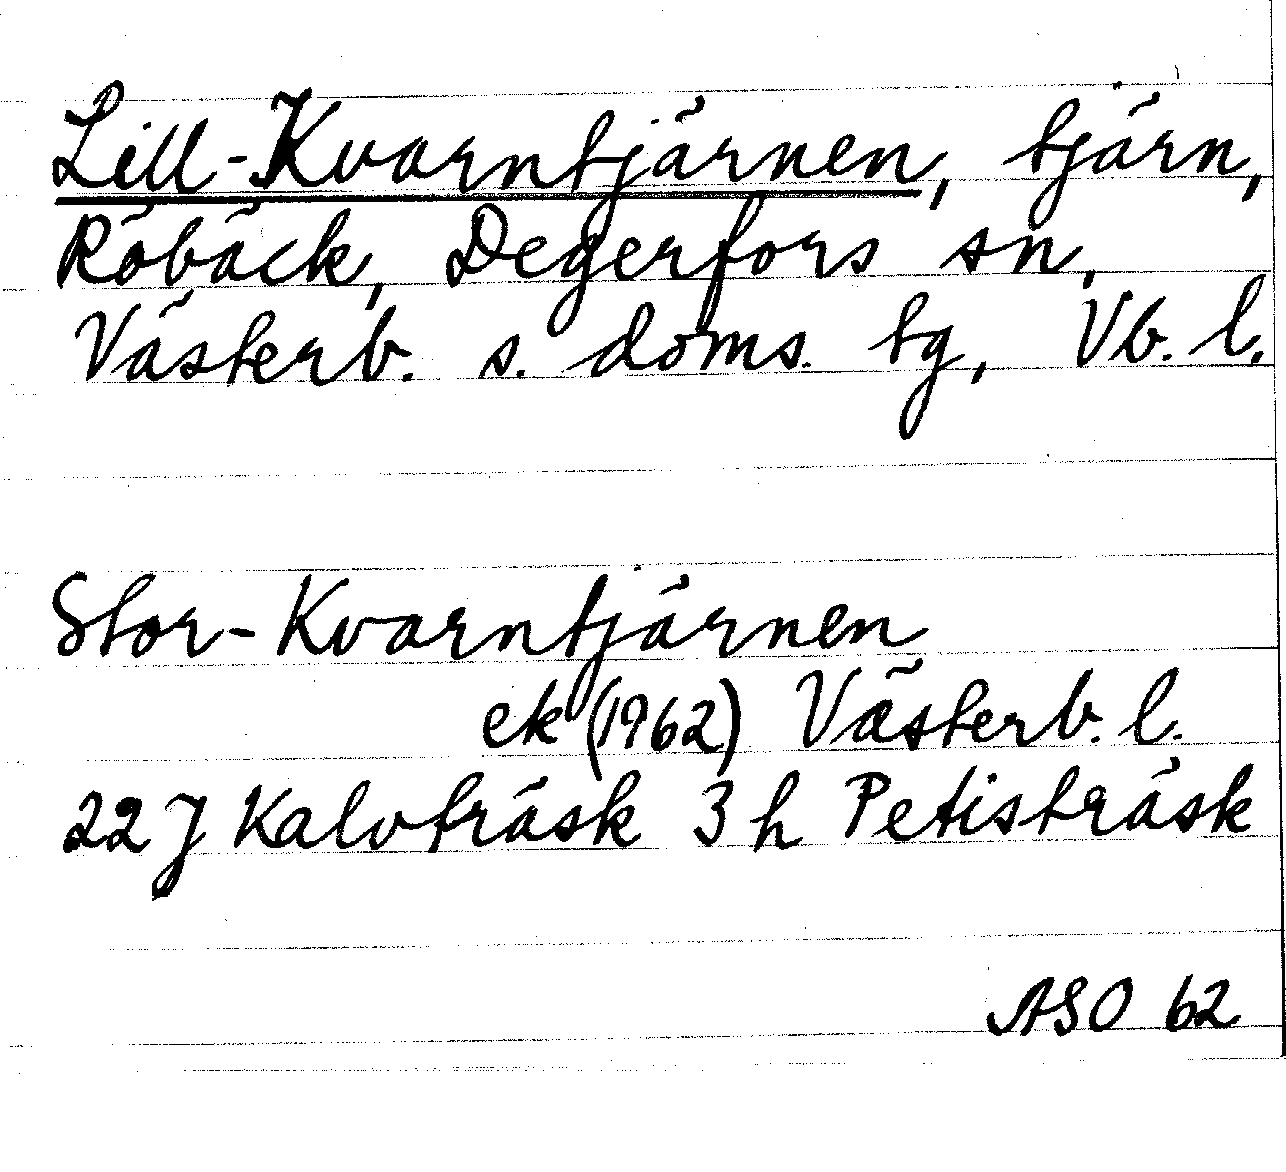 Lill-Kvarntjärnen, tjärn,
Röbäck, Degerfors sn,
Västerb. s. doms. tg, Vb. l.
Stor-Kvarntjärnen
ek (1962) Västerb. l.
22 J Kalvträsk 3 h Petisträsk
ASO 62